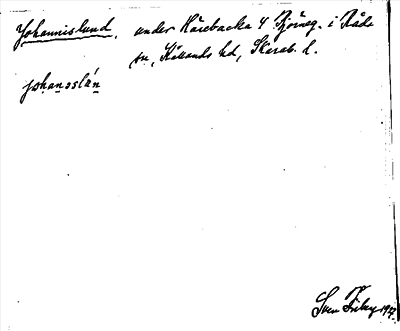 Johannislund, under Härebacka 4 Björneg. i Råda
sn, Kållands hd, Skarab. l.
johansslún
Sven Friberg 1927